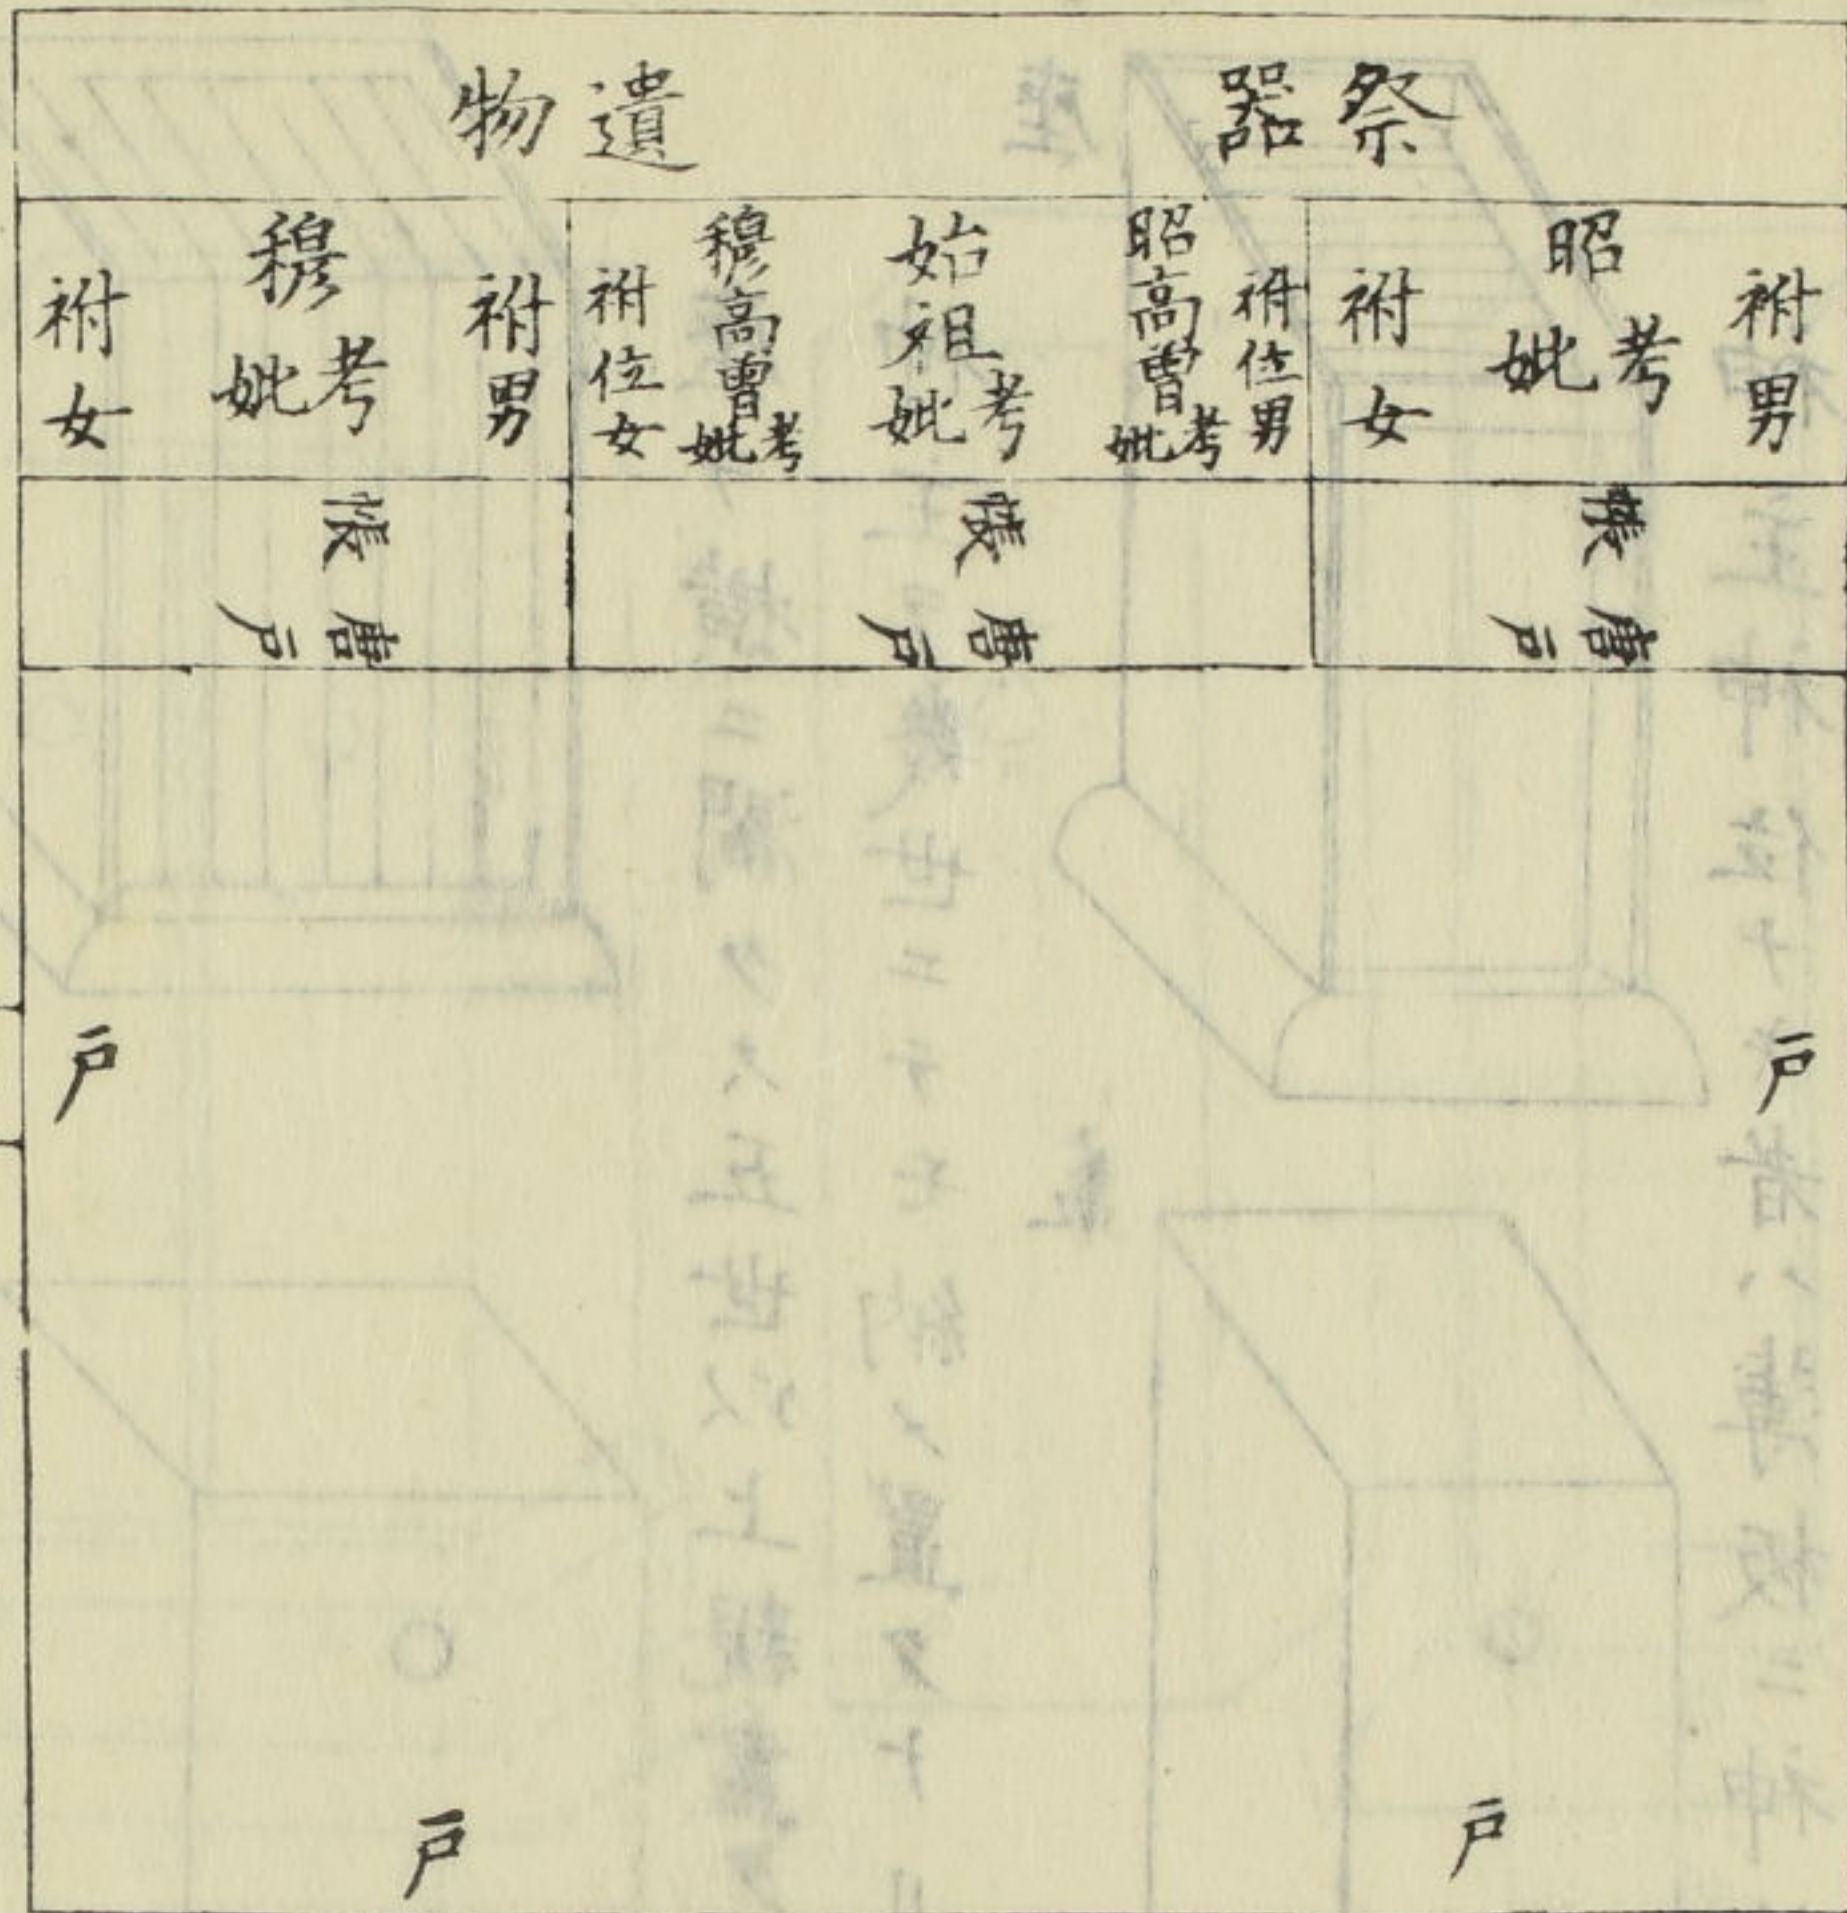 祭器
遺物
祔男
昭
考
妣
祔女
祔位男
昭高曽
考
妣
始祖
考
妣
穆高曽
考
妣
祔位女
祔男
穆
考
妣
祔女
帳
唐戸
帳
唐戸
帳
唐戸
戸
戸
戸
戸